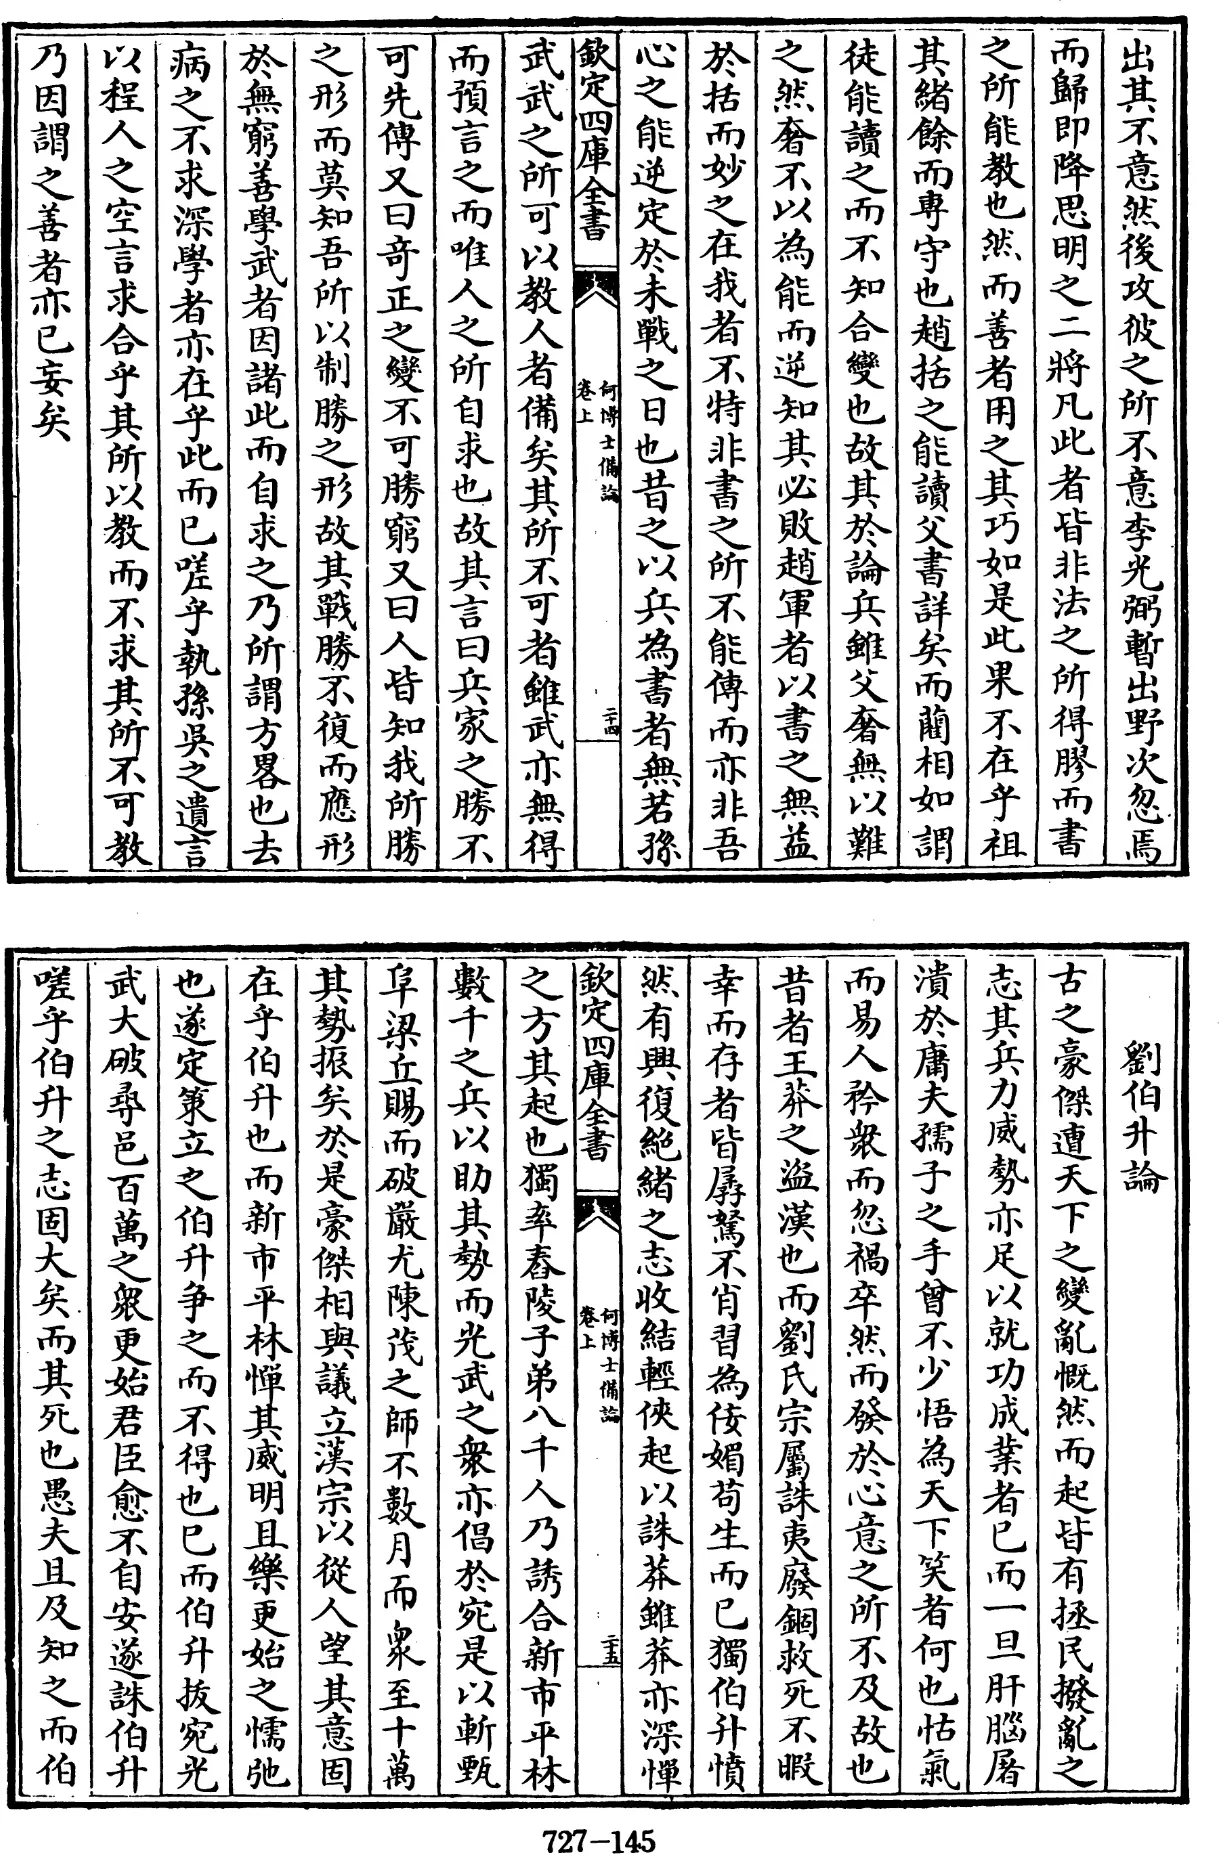 出其不意然後攻彼之所不意李光弼暫出野次忽焉
而歸即降思明之二將凡此者皆非法之所得膠而書
之所能教也然而善者用之其巧如是此果不在乎祖
其緒餘而専守也趙括之能讀父書詳矣而藺相如謂
徒能讀之而不知合變也故其於論兵雖父奢無以難
之然奢不以為能而逆知其必敗趙軍者以書之無益
於括而妙之在我者不特非書之所不能傳而亦非吾
心之能逆定於未戰之日也昔之以兵為書者無若孫
欽定四庫全書
何博士備論
卷上
二十四
武武之所可以教人者備矣其所不可者雖武亦無得
而預言之而唯人之所自求也故其言曰兵家之勝不
可先傳又曰奇正之變不可勝窮又曰人皆知我所勝
之形而莫知吾所以制勝之形故其戰勝不復而應形
於無窮善學武者因諸此而自求之乃所謂方畧也去
病之不求深學者亦在乎此而已嗟乎執孫吳之遺言
以程人之空言求合乎其所以教而不求其所不可教
乃因謂之善者亦已妄矣
劉伯升論
古之豪傑遭天下之變亂慨然而起皆有拯民撥亂之
志其兵力威勢亦足以就功成業者已而一旦肝腦屠
潰於庸夫孺子之手曾不少悟為天下笑者何也怙氣
而易人矜衆而忽禍卒然而發於心意之所不及故也
昔者王莽之盜漢也而劉氏宗屬誅夷廢錮救死不暇
幸而存者皆孱駑不肖習為佞媚苟生而已獨伯升憤
然有興復絕緒之志收結輕俠起以誅莽雖莽亦深憚
欽定四庫全書
何博士備論
卷上
二十五
之方其起也獨率舂陵子弟八千人乃誘合新市平林
數千之兵以助其勢而光武之衆亦倡於宛是以斬甄
阜梁丘賜而破嚴尤陳茂之師不數月而衆至十萬
其勢振矣於是豪傑相與議立漢宗以從人望其意固
在乎伯升也而新市平林憚其威明且樂更始之懦弛
也遂定策立之伯升爭之而不得也已而伯升拔宛光
武大破尋邑百萬之衆更始君臣愈不自安遂誅伯升
嗟乎伯升之志固大矣而其死也愚夫且及知之而伯
727-145